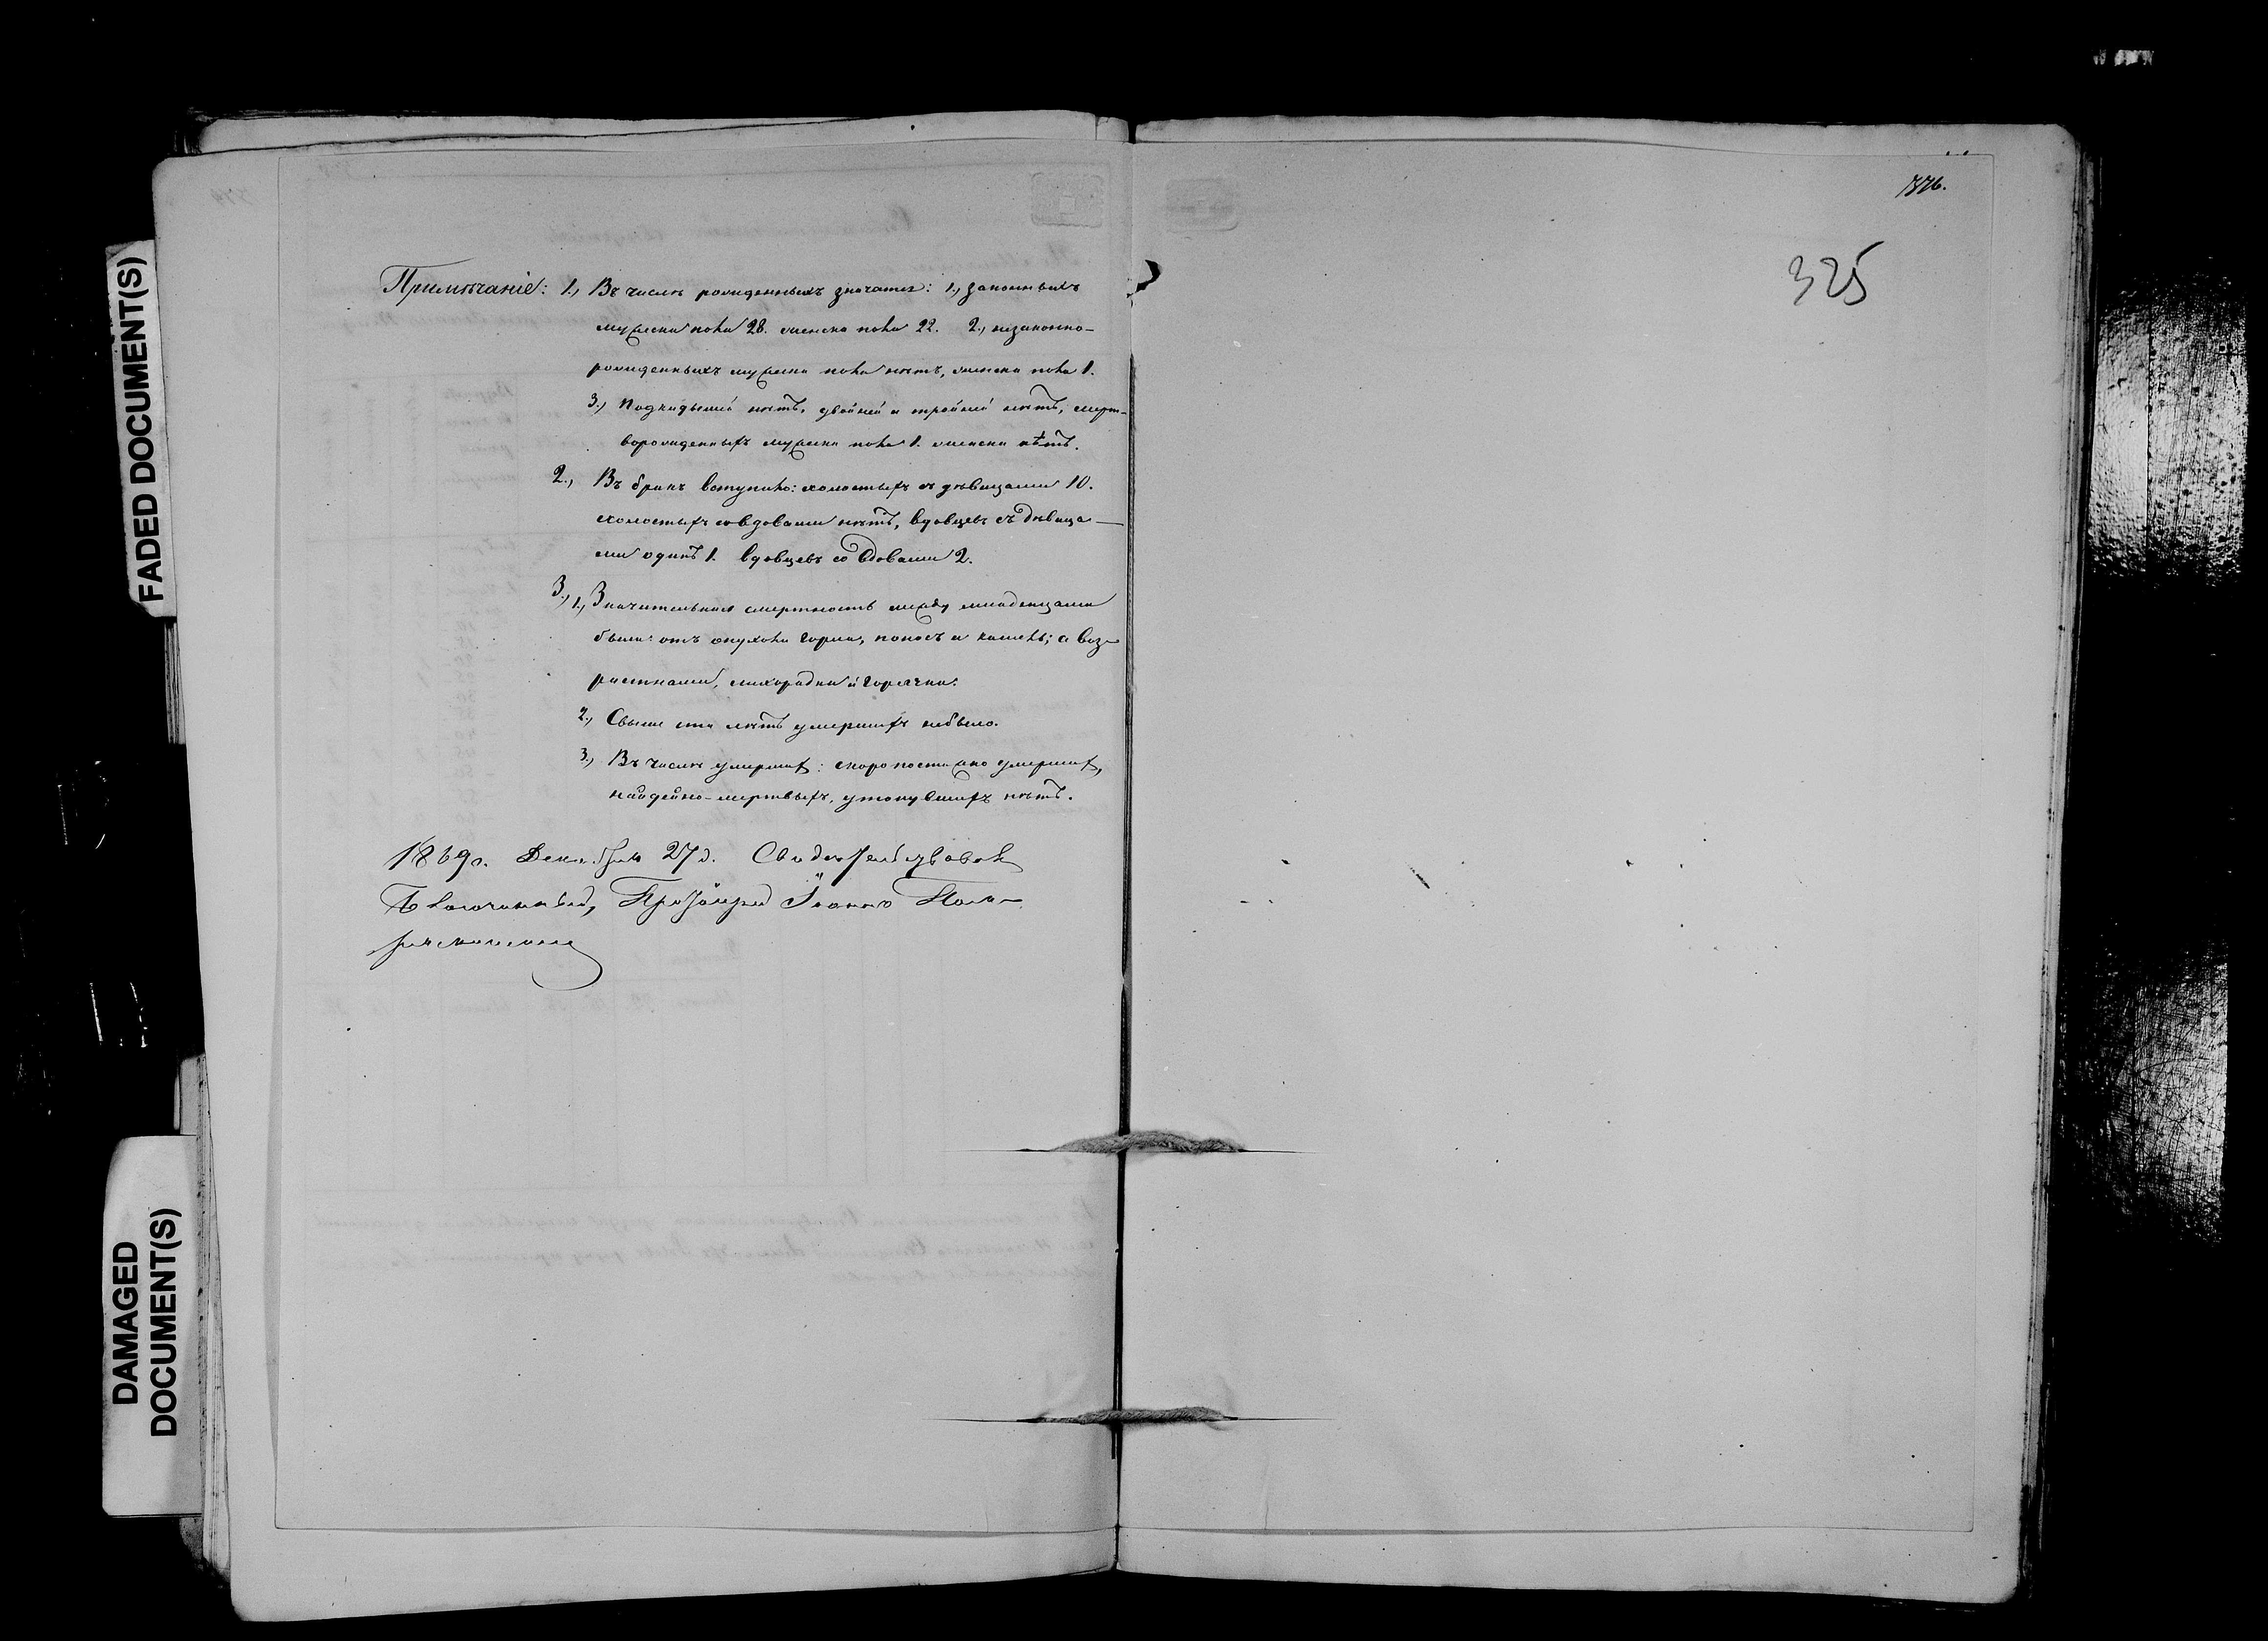 776.
325
Примѣчаніе: 1., Въ числѣ рожденныхъ значатся: 1., законныхъ
мужеска пола 28. женска пола 22. 2., незаконно-
рожденныхъ мужеска пола нѣтъ, женска пола 1.
3., Подкидышей нѣтъ, двойней и тройней нѣтъ, мерт-
ворожденныхъ мужеска пола 1. женска нѣтъ.
2., Въ бракъ вступило: холостыхъ съ дѣвицами 10.
холостыхъ со вдовами нѣтъ, вдовцевъ съ дѣвица-
ми одинъ 1. вдовцевъ со вдовами 2.
3., 1., Значительная смертность между младенцами
была: отъ опухоли горла, поносъ и кашель; а воз-
растными, лихорадки и горячки.
2., Свыше ста лѣтъ умершихъ небыло.
3., Въ числѣ умершихъ: скоропостижно умершихъ,
найдено-мертвыхъ, утонувшихъ нѣтъ.
1869 г. Декабря 27 д. Свидѣтельствовалъ
Благочинный, Протоіерей Іоаннъ
FADED DOCUMENT(S)
DAMAGED
DOCUMENT(S)